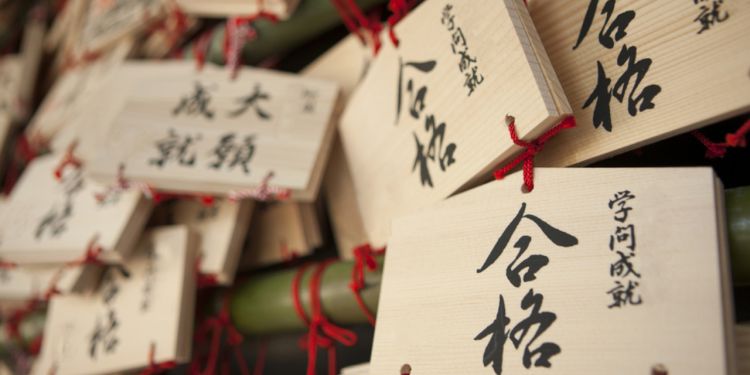 大願
成就
学問成就
合格
就
合格
学問成就
合格
格
合格